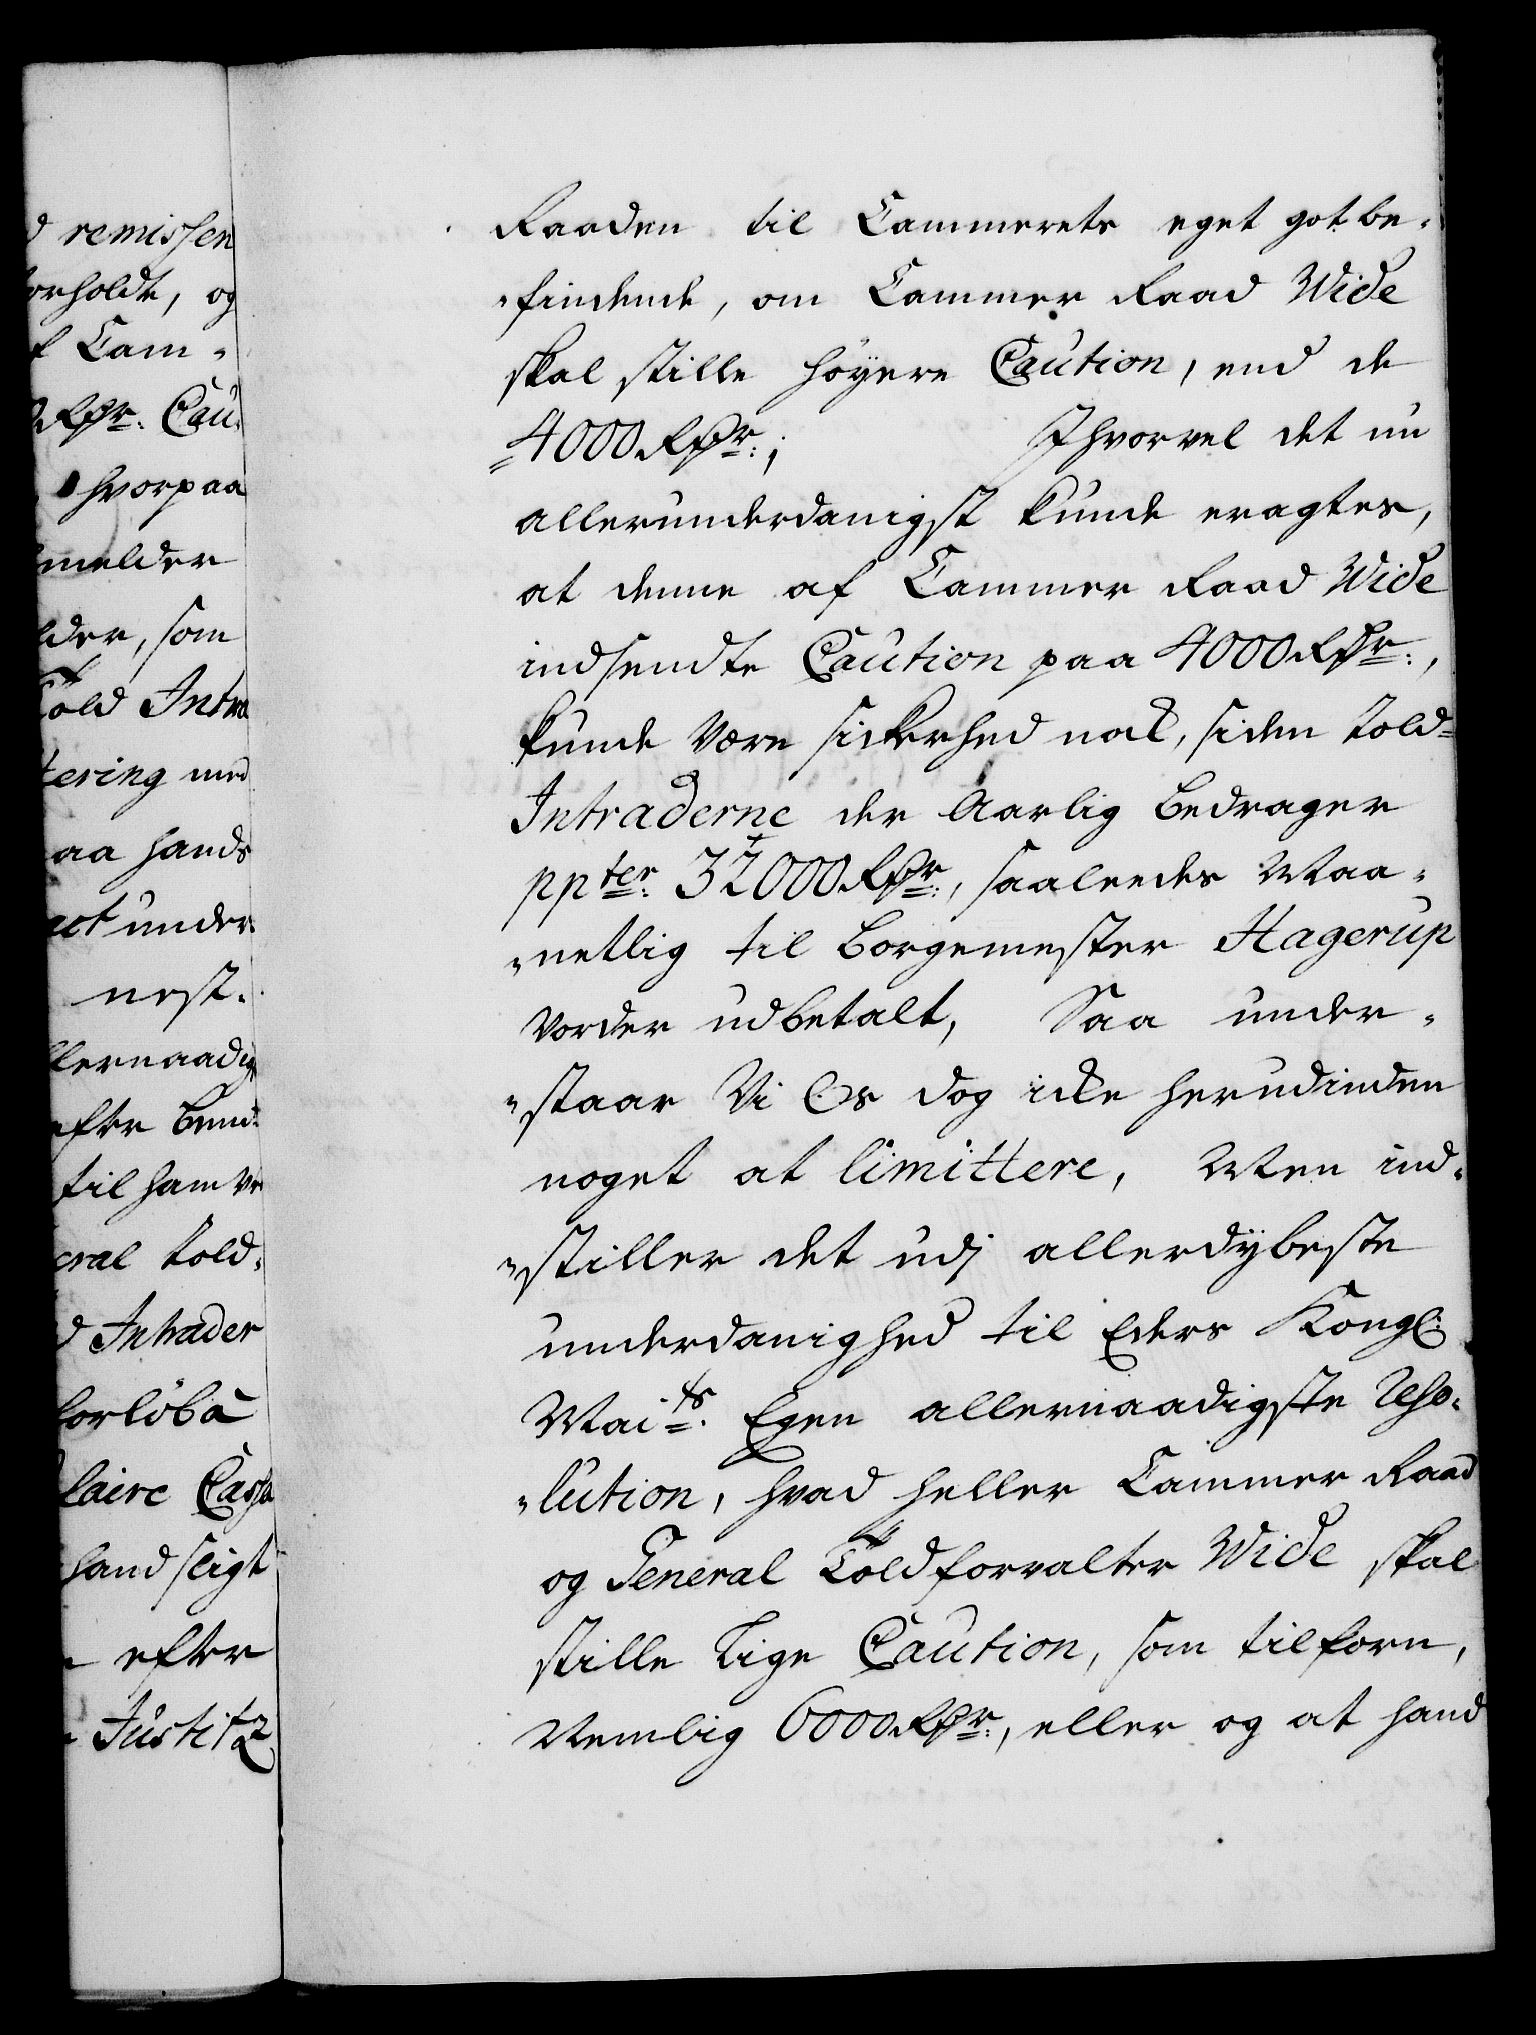 d remissen
orholdt, og
f Cam-
Rdr. Cau-
hvorpaa
melder
lder, som
Told Intra
tering med
aa hands
act under
nest.
llernaadig
efter
til ham
eral Told-
d Intrader
forlöbe
laire Cassa
hand seigt
efter
Justitz
Raaden til Cammerets eget got be-
"findende, om Cammer Raad Wide
skal stille höyere Caution, end de
4000 Rdr.; Ihvorvel det nu
allerunderdanigst kunde eragtes,
at denne af Cammer Raad Wide
indsendte Caution paa 4000 Rdr.,
kunde være sickerhed nok, siden Told-
Intraderne der Aarlig bedrager
ppter. 32000 Rdr., saaleedes Maa-
"netlig til Borgemester Hagerup
vorder udbetalt, Saa under-
"staar Vi Os dog icke herudinden
noget at limittere, Men ind-
"stiller det udj allerdybeste
underdanighed til Eders Kongl.
Maits. Egen allernaadigste Reso-
"lution, hvad heller Cammer Raad
og General Toldforvalter Wide skal
stille lige Caution, som tilforn,
Nemlig 6000 Rdr., eller og at hand